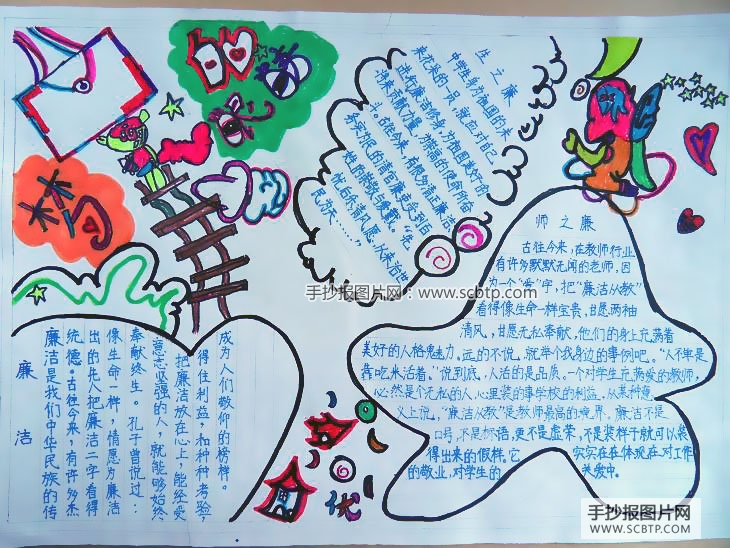 生之廉
中学生身为祖国的未
来花朵的一员,就应对自己
进行廉洁修身,为祖国美好的
将来贡献力量,为崇高的使命所奋
斗。古往今来,有很多清正廉洁
务实为民的清官廉吏受到百
姓的崇敬与爱戴。"先
忧后乐"清风愿,从来治世
民为天……"
师之廉
古往今来,在教师行业
有许多默默无闻的老师,因
为一个"香"字,把"廉洁从教"
看得像生命一样宝贵,甘愿两袖
清风,甘愿无私奉献,他们的身上充满着
美好的人格魅力。远的不说,就举个我身边的事例吧。"人不单是
靠吃米活着。"说到底,人活的是品质。一个对学生充满爱的教师,
必然是个无私的人,心里装的事学校的利益。从某种意
义上说,"廉洁从教"是教师最高的境界。廉洁不是
口号,不是标语,更不是虚荣,不是装样子就可以装
得出来的假样。它 实实在在体现在对工作
的敬业,对学生的 关爱中。
廉洁
廉洁是我们中华民族的传
统德。古往今来,有许多杰
出的先人把廉洁二字看得
像生命一样,情愿为廉洁
奉献终生。孔子曾说过:
意志坚强的人,就能够始终
把廉洁放在心上,能经受
得住利益,和种种考验,
成为人们敬仰的榜样。
优
手抄报图片网:www.scbtp.com
手抄报图片网
WWW.SCBTP.COM